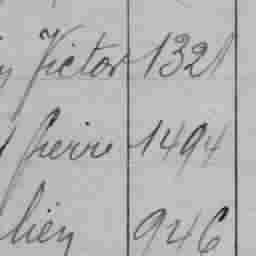 Victor 1321
Pierre 1494
lien 946